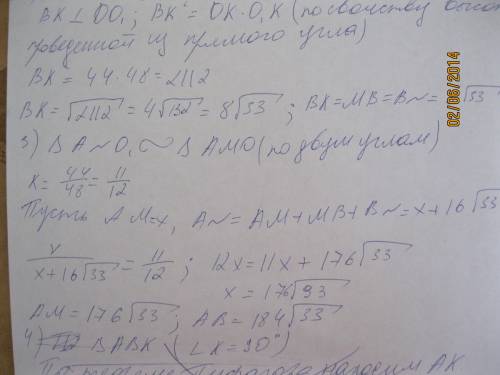 BK ⊥ OO₁; BK² = OK · O₁K (по свойству высоты
проведенной из прямого угла)
BK = 44 · 48 = 2112
BK = √2112 = 4√132 = 8√33 ; BK = MB = BN = 8√33
3) △ANO₁ ∾ △AMO (по двум углам)
K = 44/48 = 11/12
Пусть AM = x, AN = AM + MB + BN = x + 16√33
x/(x + 16√33) = 11/12 ; 12x = 11x + 176√33
x = 176√33
AM = 176√33 ; AB = 184√33
4) △ABK (∠K = 90°)
По теореме Пифагора находим AK
02/06/2014